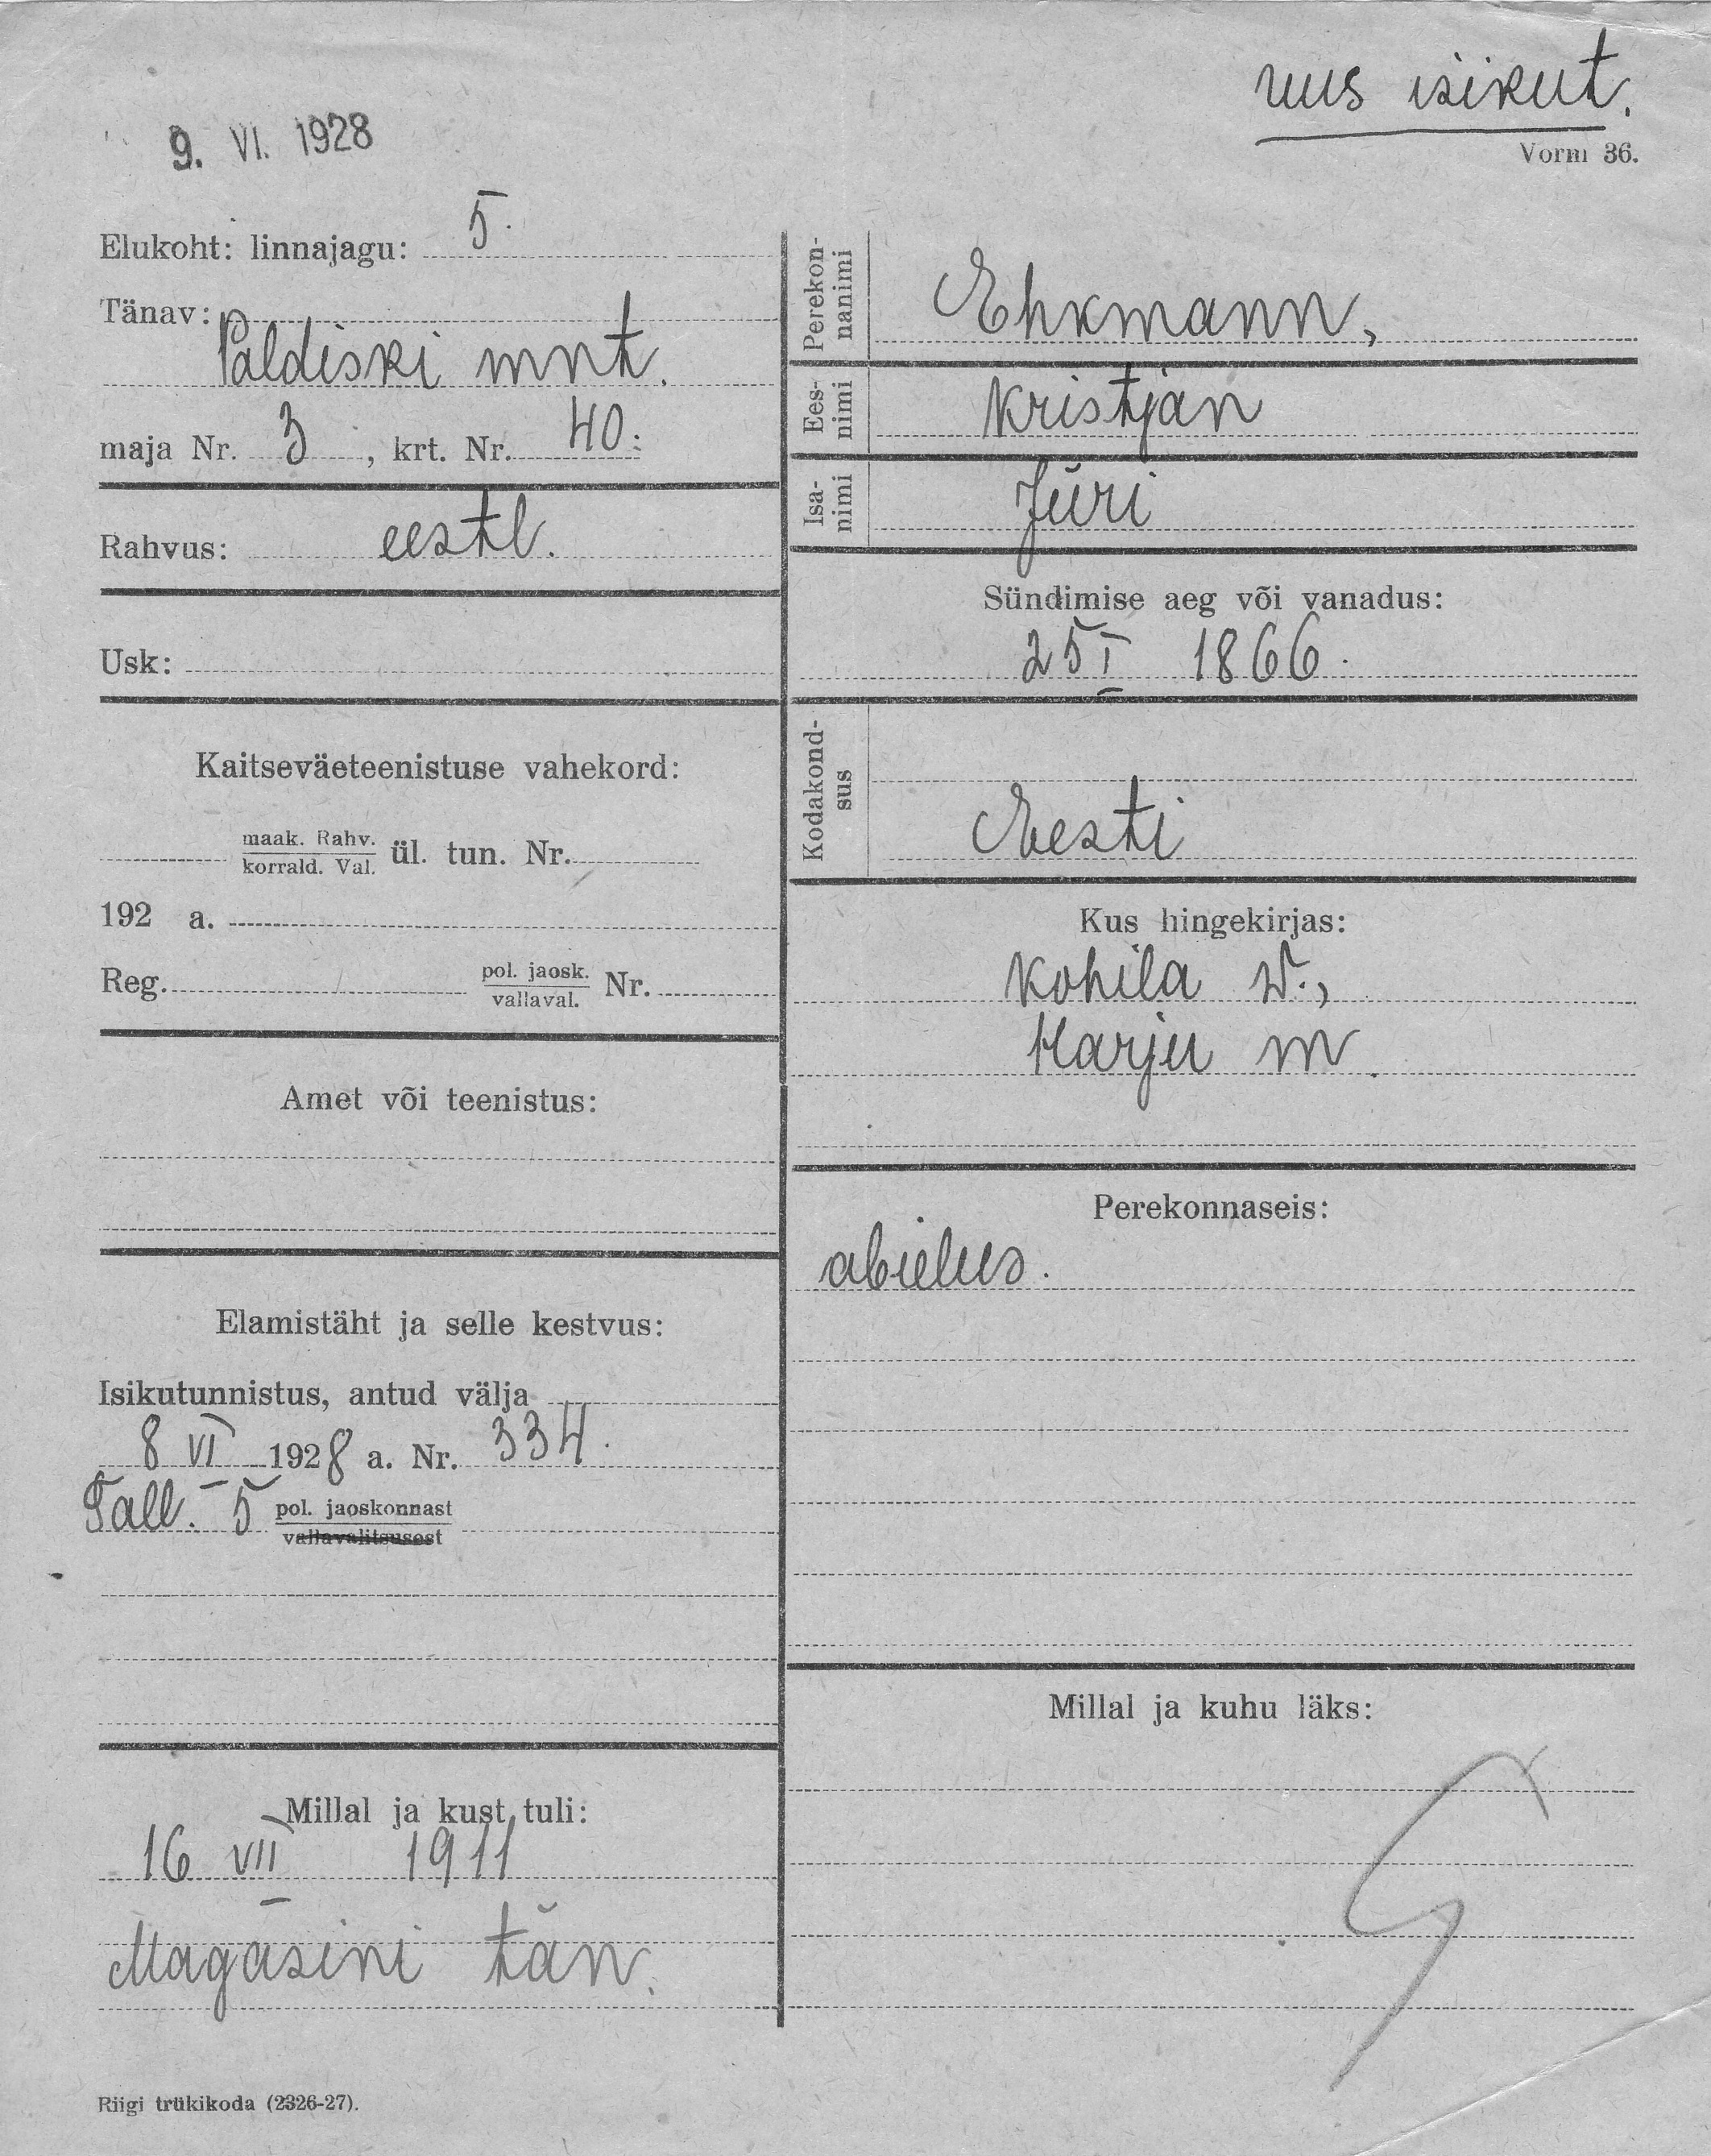 uus isikut.
9. VI. 1928
Vorm 36.
Elukoht: linnajagu: 5.
Tänav:
Paldiski mnt.
maja Nr. 3, krt. Nr. 40.
Rahvus: eestl.
Usk:
Kaitseväeteenistuse vahekord:
maak. Rahv.
korrald. Val.
ül. tun. Nr.
192 a.
Reg. pol. jaosk.
vallaval.
Nr.
Amet või teenistus:
Elamistäht ja selle kestvus:
Isikutunnistus, antud välja
8 VI 1928 a. Nr. 334.
Tall. 5 pol. jaoskonnast
vallavalitsusest
Millal ja kust tuli:
16 VII 1911
Magasini tän.
Riigi trükikoda (2326-27).
Perekon-
nanimi
Ehkmann,
Ees-
nimi
Kristjan
Isa-
nimi
Jüri
Sündimise aeg või vanadus:
25 I 1866.
Kodakond-
sus
Eesti
Kus hingekirjas:
Kohila v.,
Harju m.
Perekonnaseis:
abielus.
Millal ja kuhu läks: